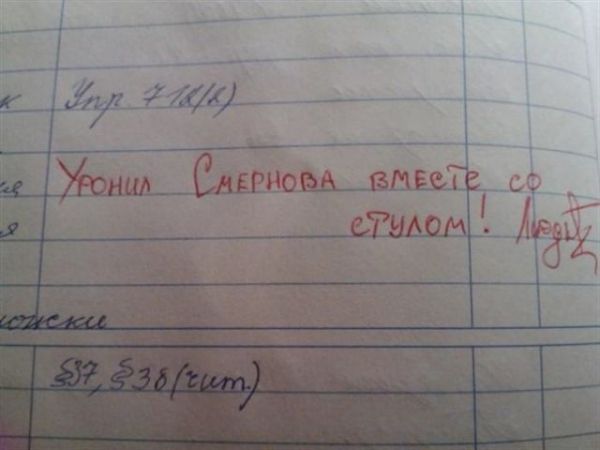 к Упр. 718(2)
Уронил Смернова вместе со
я
стулом!
я
§37, §38 (чит.)